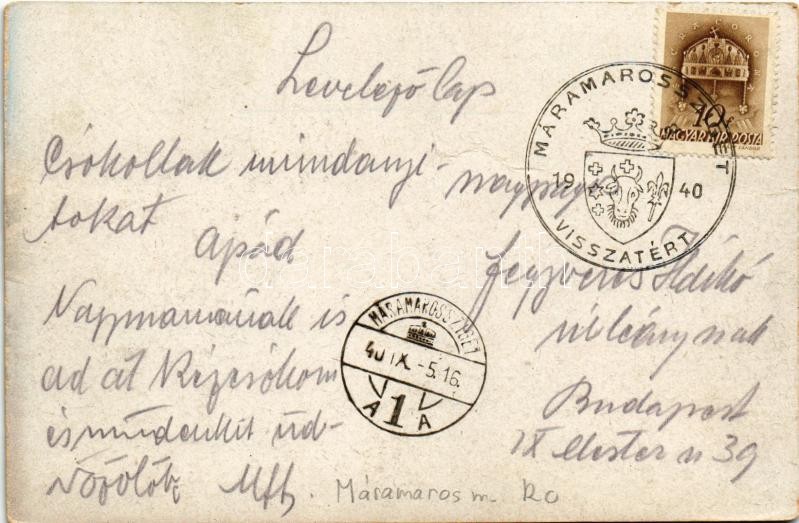 Levelezőlap
MÁRAMAROSSZIGET
1940
VISSZATÉRT
MAGYAR KIR. POSTA
10
Csókollak mindanyi-
tokat
Apád
Nagymamának is
ad át kézcsókom
és mindenkit üd-
vözölök
nagyságos
Fegyveres Ildikó
úrleánynak
Budapest
IX Mester u 39
MÁRAMAROSSZIGET
40 IX. -5. 16
A 1 A
Máramaros m. Ro